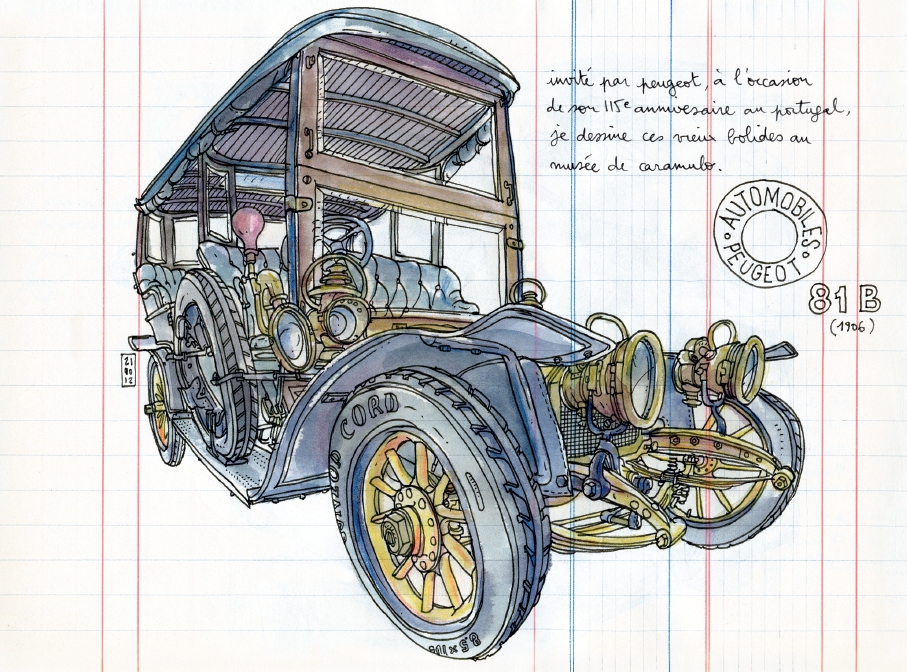 invité par peugeot, à l'occasion
de son 115e anniversaire au portugal,
je dessine ces vieux bolides au
musée de caramulo.
AUTOMOBILES
PEUGEOT
81 B
(1906)
21
10
12
CORD